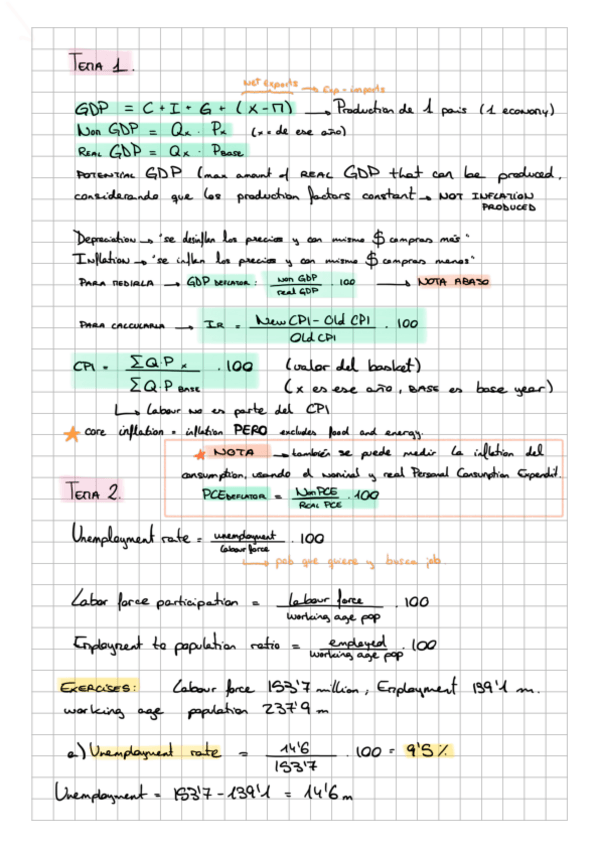 TEMA 1.
NET Exports → Exp - imports
GDP = C + I + G + (X - M) → Production de 1 país (1 economy)
Non GDP = Qx · Px (x = de ese año)
REAL GDP = Qx · PBASE
POTENTIAL GDP (max amount of REAL GDP that can be produced,
considerando que los production factors constant → NOT INFLATION
PRODUCED
Depreciation → "se desinflan los precios y con mismo $ compras más"
Inflation → "se inflan los precios y con mismo $ compras menos"
PARA MEDIRLA → GDP DEFLATOR: Non GDP / real GDP · 100 → NOTA ABAJO
PARA CALCULARLA → IR = New CPI - Old CPI / Old CPI · 100
CPI = ΣQ·P x / ΣQ·P BASE · 100 (valor del basket)
(x es ese año, BASE es base year)
↳ Labour no es parte del CPI
★ core inflation = inflation PERO excludes food and energy.
★ NOTA → también se puede medir la inflation del
consumption, usando el nominal y real Personal Consumption Expendit.
PCE DEFLATOR = Non PCE / REAL PCE · 100
TEMA 2.
Unemployment rate = unemployment / labour force · 100
↳ pob que quiere y busca job
Labor force participation = labour force / working age pop · 100
Employment to population ratio = employed / working age pop · 100
EXERCISES: Labour force 153'7 million, Employment 139'1 m.
working age population 237'9 m
a) Unemployment rate = 14'6 / 153'7 · 100 = 9'5 %
Unemployment = 153'7 - 139'1 = 14'6 m